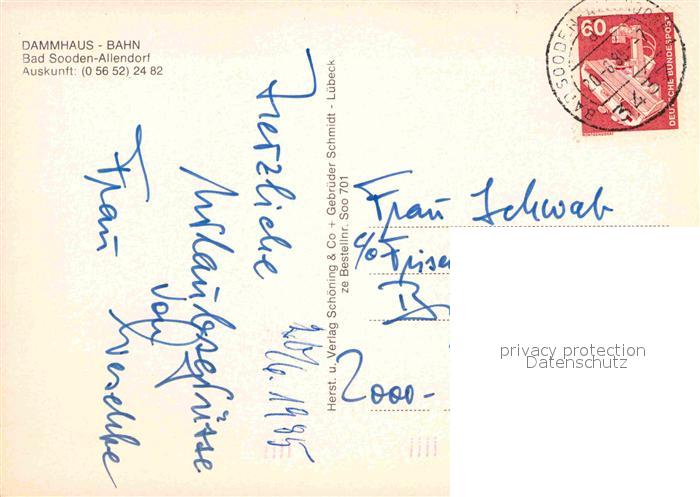 DAMMHAUS - BAHN
Bad Sooden-Allendorf
Auskunft: (0 56 52) 24 82
Herzliche
Urlaubsgrüsse
von
Frau
20/6. 1985
Herst. u. Verlag Schöning & Co + Gebrüder Schmidt - Lübeck
ze Bestellnr. Soo 701
60
DEUTSCHE BUNDESPOST
BAD SOODEN-
Frau Schwab
c/o Frise
2000-
privacy protection
Datenschutz